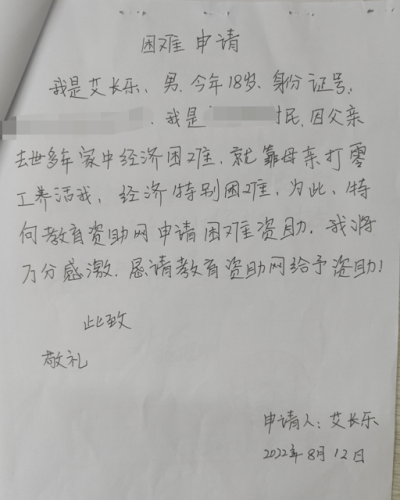 困难申请
我是艾长乐、男、今年18岁、身份证号,
、我是 民,因父亲
去世多年家中经济困难,就靠母亲打零
工养活我,经济特别困难,为此,特
向教育资助网申请困难资助,我将
万分感激,恳请教育资助网给予资助!
此致
敬礼
申请人:艾长乐
2022年8月12日